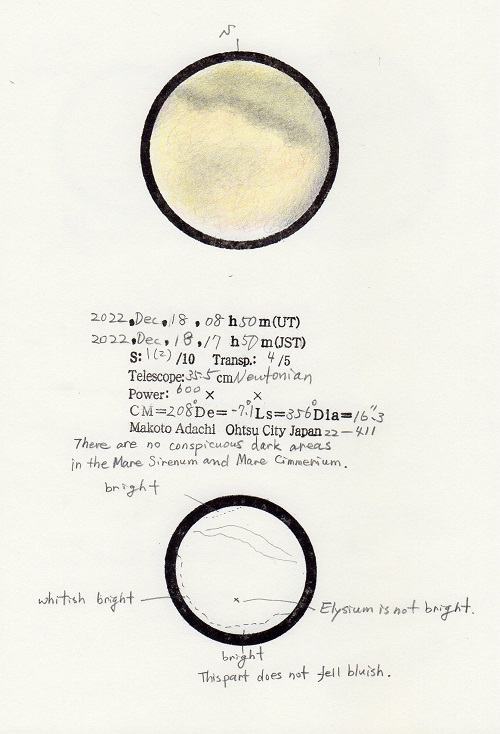 N
2022, Dec, 18, 08 h 50 m (UT)
2022, Dec, 18, 17 h 50 m (JST)
S: 1(2) /10 Transp.: 4/5
Telescope: 35.5 cm Newtonian
Power: 600 × ×
CM=208° De= -7.1° Ls=356° Dia=16".3
Makoto Adachi Ohtsu City Japan 22-411
There are no conspicuous dark areas
in the Mare Sirenum and Mare Cimmerium.
bright
whitish bright
Elysium is not bright.
bright
This part does not fell bluish.